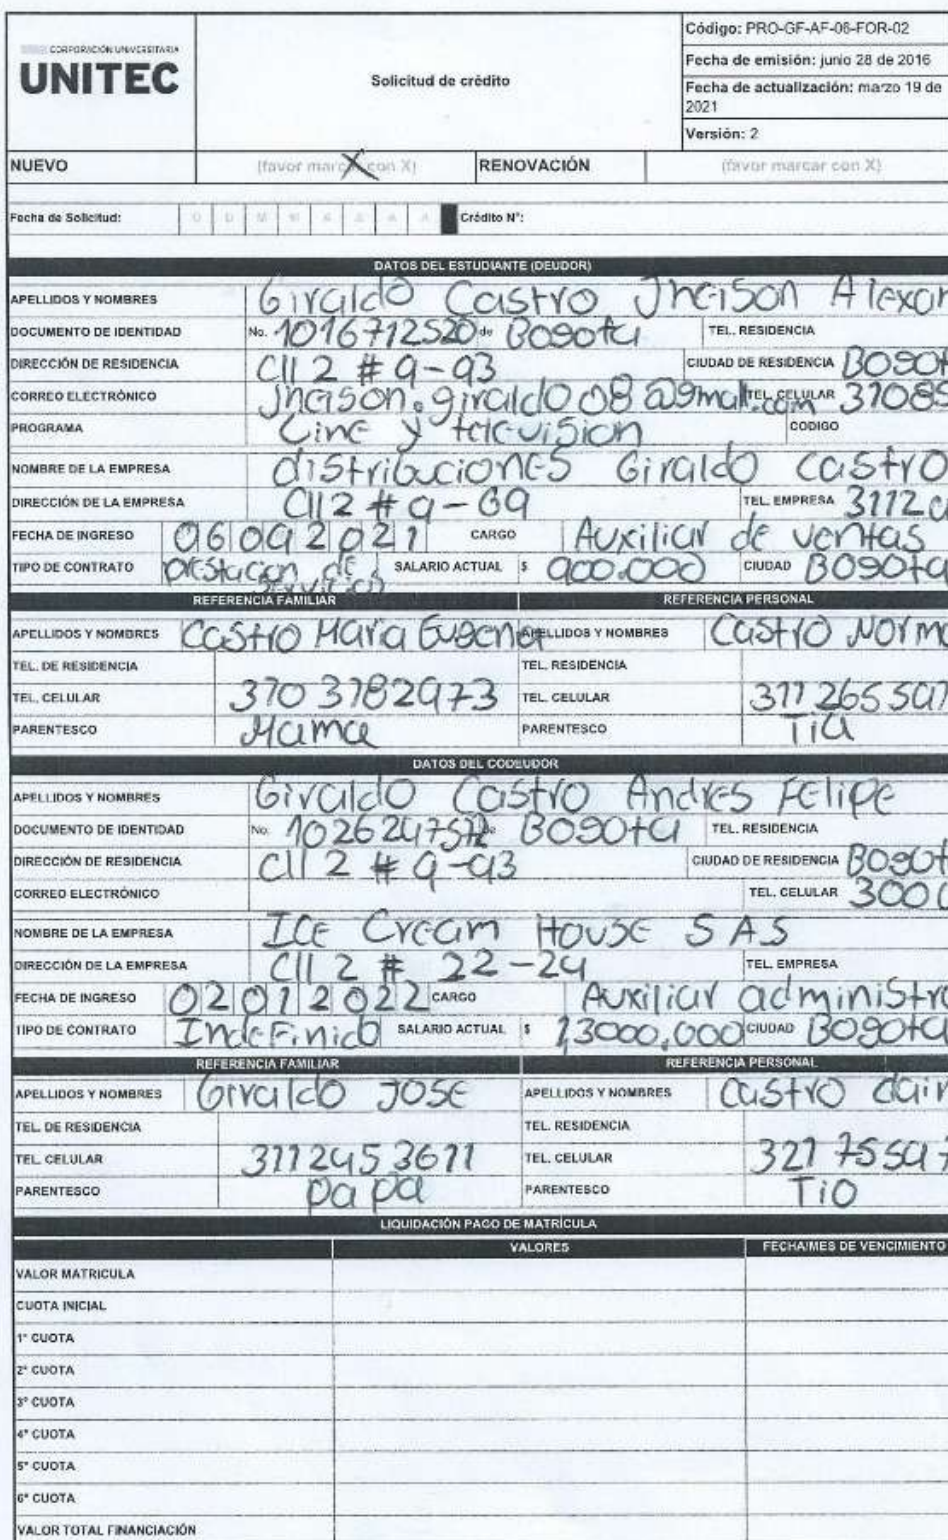 CORPORACIÓN UNIVERSITARIA
UNITEC
Solicitud de crédito
Código: PRO-GF-AF-06-FOR-02
Fecha de emisión: junio 28 de 2016
Fecha de actualización: marzo 19 de
2021
Versión: 2
NUEVO (favor marcar con X) X RENOVACIÓN (favor marcar con X)
Fecha de Solicitud: D D M M A A A A Crédito N°:
DATOS DEL ESTUDIANTE (DEUDOR)
APELLIDOS Y NOMBRES Giraldo Castro Jheison Alexan
DOCUMENTO DE IDENTIDAD No. 1016712520 de Bogota TEL. RESIDENCIA
DIRECCIÓN DE RESIDENCIA Cll 2 # 9-93 CIUDAD DE RESIDENCIA Bogot
CORREO ELECTRÓNICO Jheison.giraldo08@gmail.com TEL. CELULAR 31089
PROGRAMA Cine y television CODIGO
NOMBRE DE LA EMPRESA distribuciones Giraldo Castro
DIRECCIÓN DE LA EMPRESA Cll 2 # 9-69 TEL. EMPRESA 3112
FECHA DE INGRESO 06092021 CARGO Auxiliar de ventas
TIPO DE CONTRATO prestacion de servicios SALARIO ACTUAL $ 900.000 CIUDAD Bogota
REFERENCIA FAMILIAR REFERENCIA PERSONAL
APELLIDOS Y NOMBRES Castro Maria Eugenia APELLIDOS Y NOMBRES Castro Norma
TEL. DE RESIDENCIA TEL. RESIDENCIA
TEL. CELULAR 3103782973 TEL. CELULAR 311265597
PARENTESCO Mama PARENTESCO Tia
DATOS DEL CODEUDOR
APELLIDOS Y NOMBRES Giraldo Castro Andres Felipe
DOCUMENTO DE IDENTIDAD No. de Bogota TEL. RESIDENCIA
DIRECCIÓN DE RESIDENCIA Cll 2 # 9-93 CIUDAD DE RESIDENCIA Bogot
CORREO ELECTRÓNICO TEL. CELULAR 300
NOMBRE DE LA EMPRESA Ice Cream House SAS
DIRECCIÓN DE LA EMPRESA Cll 2 # 22-24 TEL. EMPRESA
FECHA DE INGRESO 02012022 CARGO Auxiliar administra
TIPO DE CONTRATO Indefinido SALARIO ACTUAL $ 1,3000,000 CIUDAD Bogota
REFERENCIA FAMILIAR REFERENCIA PERSONAL
APELLIDOS Y NOMBRES Giraldo Jose APELLIDOS Y NOMBRES Castro
TEL. DE RESIDENCIA TEL. RESIDENCIA
TEL. CELULAR 3112453611 TEL. CELULAR 32175597
PARENTESCO papa PARENTESCO Tio
LIQUIDACIÓN PAGO DE MATRÍCULA
VALORES FECHA/MES DE VENCIMIENTO
VALOR MATRICULA
CUOTA INICIAL
1° CUOTA
2° CUOTA
3° CUOTA
4° CUOTA
5° CUOTA
6° CUOTA
VALOR TOTAL FINANCIACIÓN